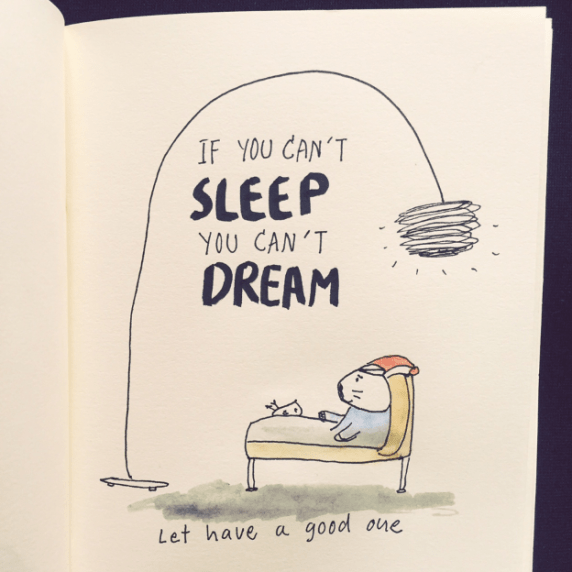 IF YOU CAN'T
SLEEP
YOU CAN'T
DREAM
Let have a good one